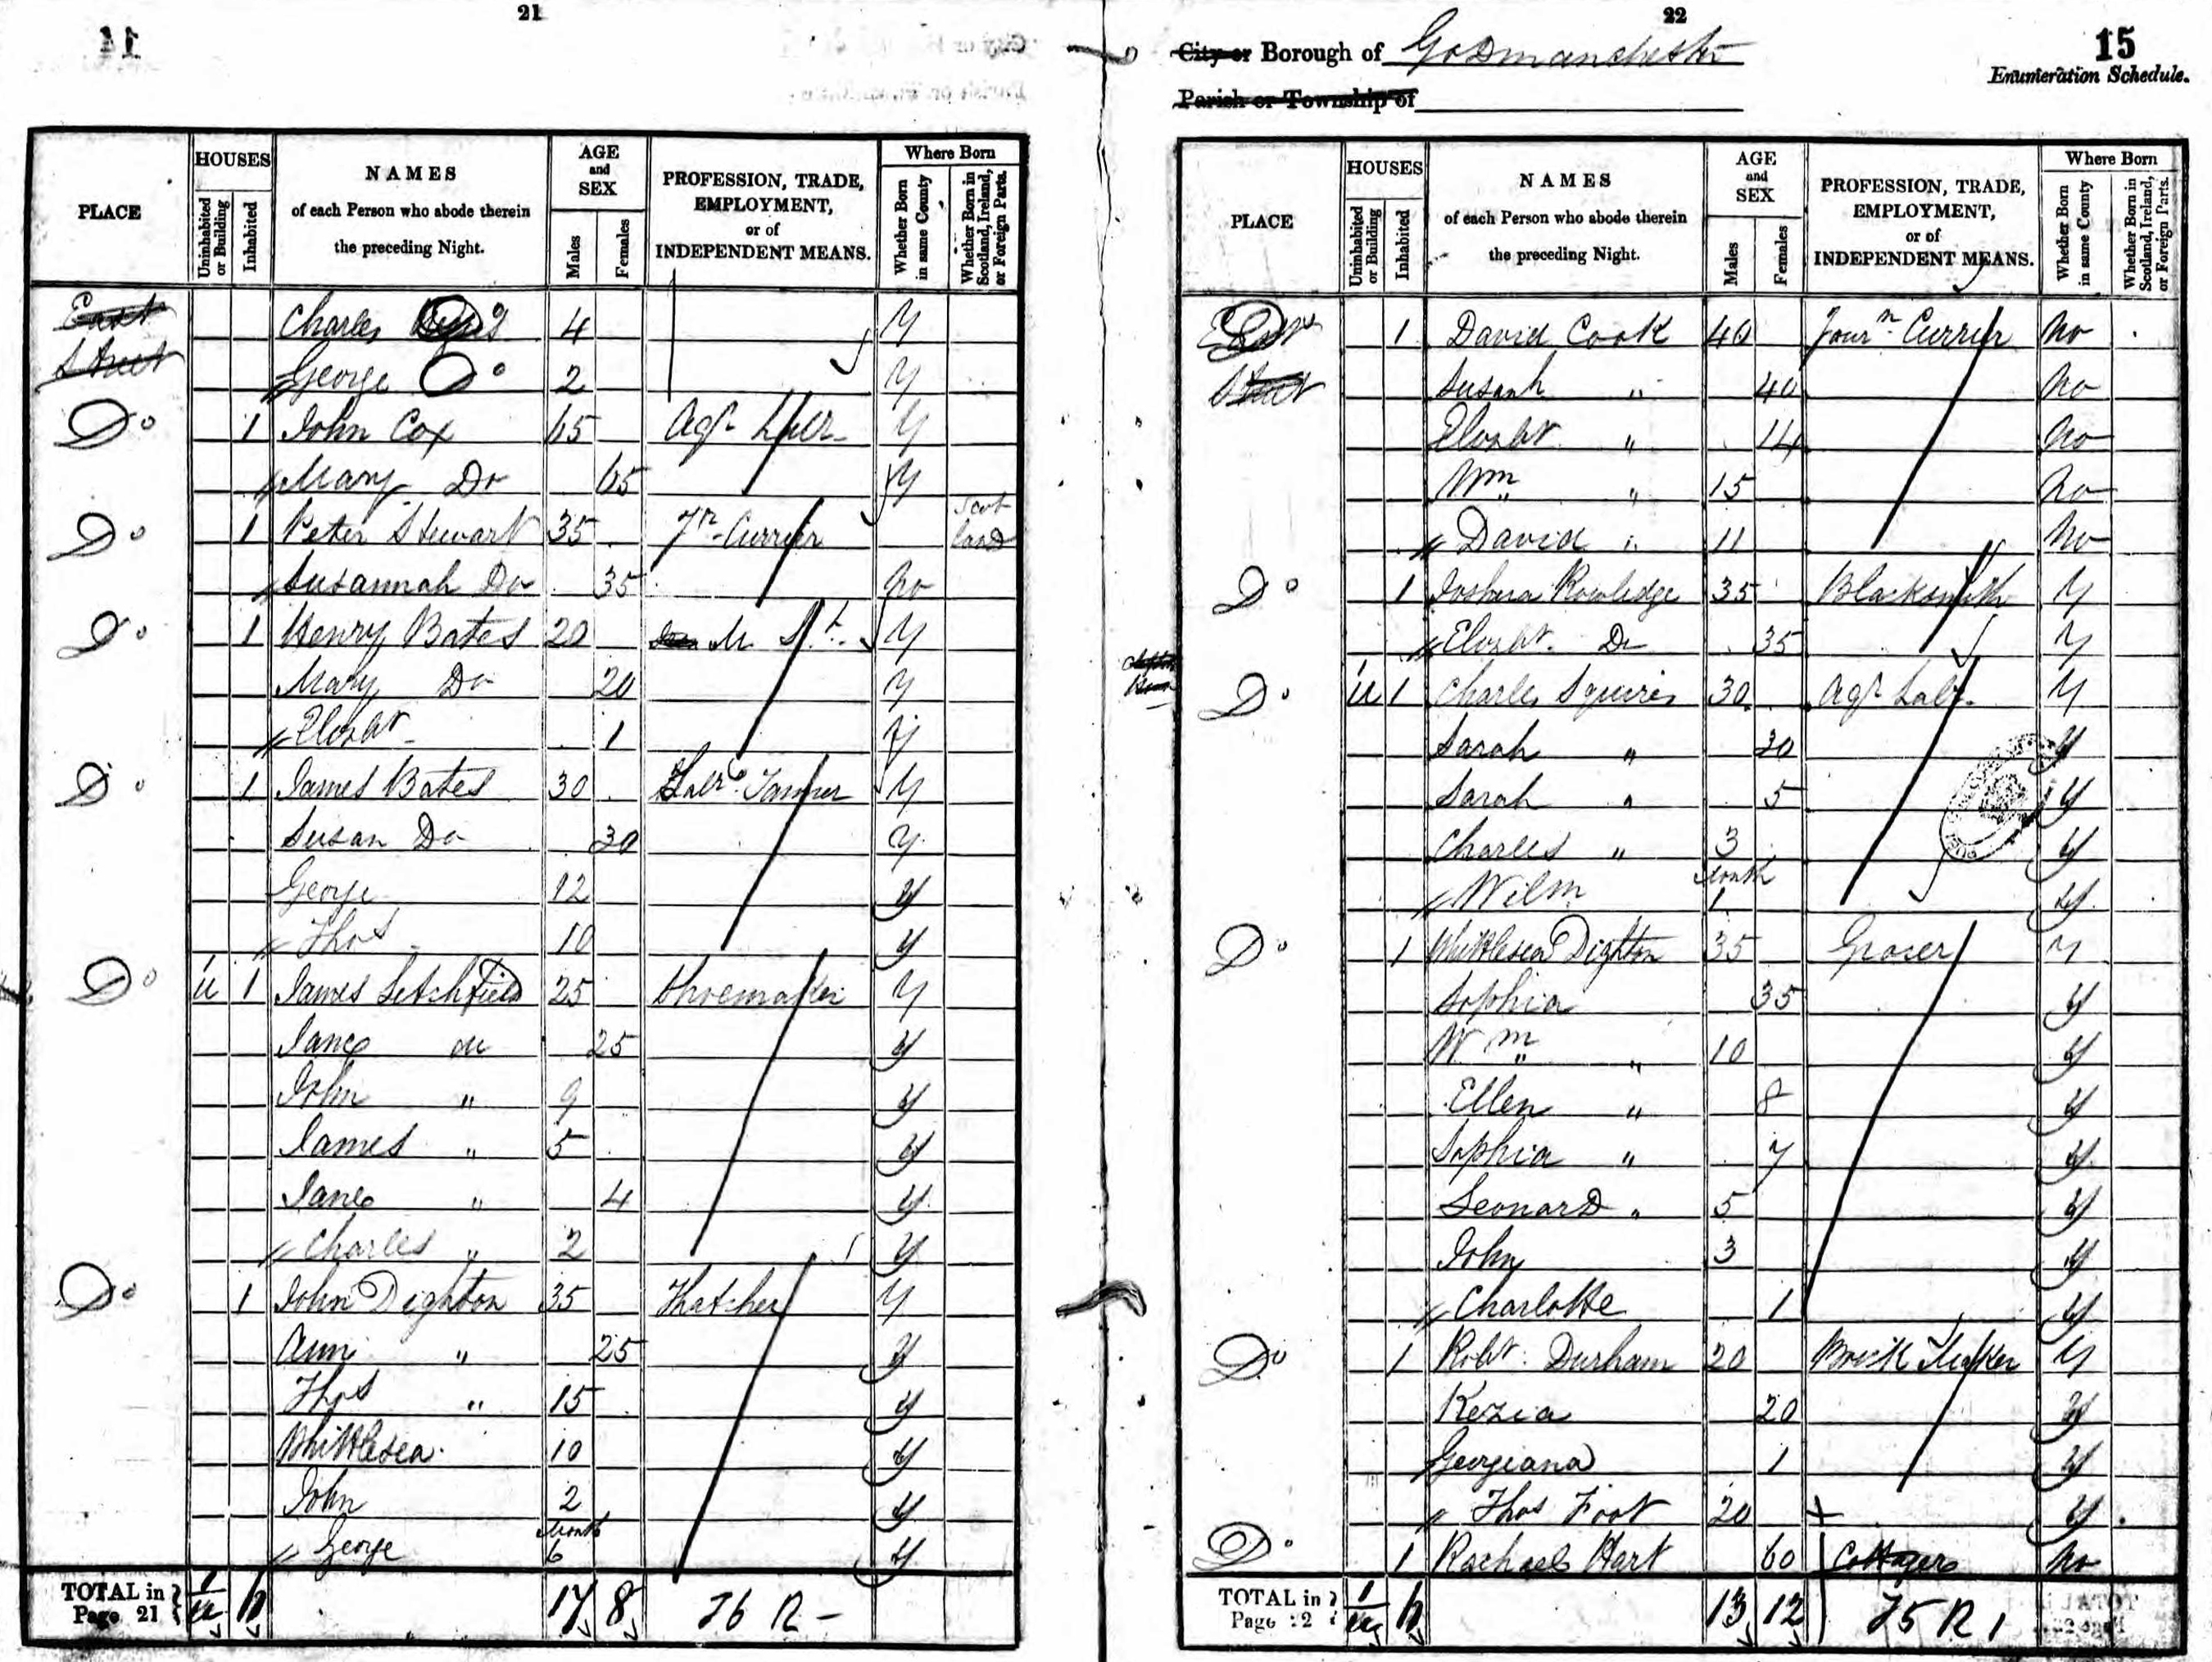 21
PLACE
HOUSES
Uninhabited or Building
Inhabited
NAMES
of each Person who abode therein
the preceding Night.
AGE and SEX
Males
Females
PROFESSION, TRADE, EMPLOYMENT, or of INDEPENDENT MEANS.
Where Born
Whether Born in same County
Whether Born in Scotland, Ireland, or Foreign Parts.
East Charles 4 y
Street George Do 2 y
Do 1 John Cox 65 Agr Lber y
Mary Do 65 y
Do 1 Peter Stewart 35 Jr Currier Scotland
Susannah Do 35 no
Do 1 Henry Bates 20 y
Mary Do 20 y
Elizabt 1 y
Do 1 James Bates 30 Labr Tanner y
Susan Do 30 y
George 12 y
Thos 10 y
Do u 1 James Litchfield 25 Shoemaker y
Jane do 25 y
John " 9 y
James " 5 y
Jane " 4 y
Charles " 2 y
Do 1 John Dighton 35 Thatcher y
Ann " 25 y
Thos " 15 y
Whittlesea 10 y
John 2 y
George Month 6 y
TOTAL in Page 21 17 8
22
City or Borough of Godmanchester
15
Enumeration Schedule.
Parish or Township of
PLACE
HOUSES
Uninhabited or Building
Inhabited
NAMES
of each Person who abode therein
the preceding Night.
AGE and SEX
Males
Females
PROFESSION, TRADE, EMPLOYMENT, or of INDEPENDENT MEANS.
Where Born
Whether Born in same County
Whether Born in Scotland, Ireland, or Foreign Parts.
1 David Cook 40 Journ Currier No
Street Susanh " 40 No
Elizabt " 14 No
Wm " 15 No
David " 11 No
Do 1 Joshua Rowledge 35 Blacksmith y
Elizabt Do 35 y
Do u 1 Charles Squires 30 Agr Labr y
Sarah " 30 y
Sarah " 5 y
Charles " 3 y
Wilm Month 1 y
Do 1 Whittlesea Dighton 35 Groser y
Sophia 35 y
Wm " 10 y
Ellen " 8 y
Sophia " 7 y
Leonard " 5 y
John 3 y
Charlotte 1 y
Do 1 Robt Durham 20 Brick Maker y
Kezia 20 y
Georgiana 1 y
Thos Foot 20 y
Do 1 Rachael Hart 60 Cottager No
TOTAL in Page 22 13 12